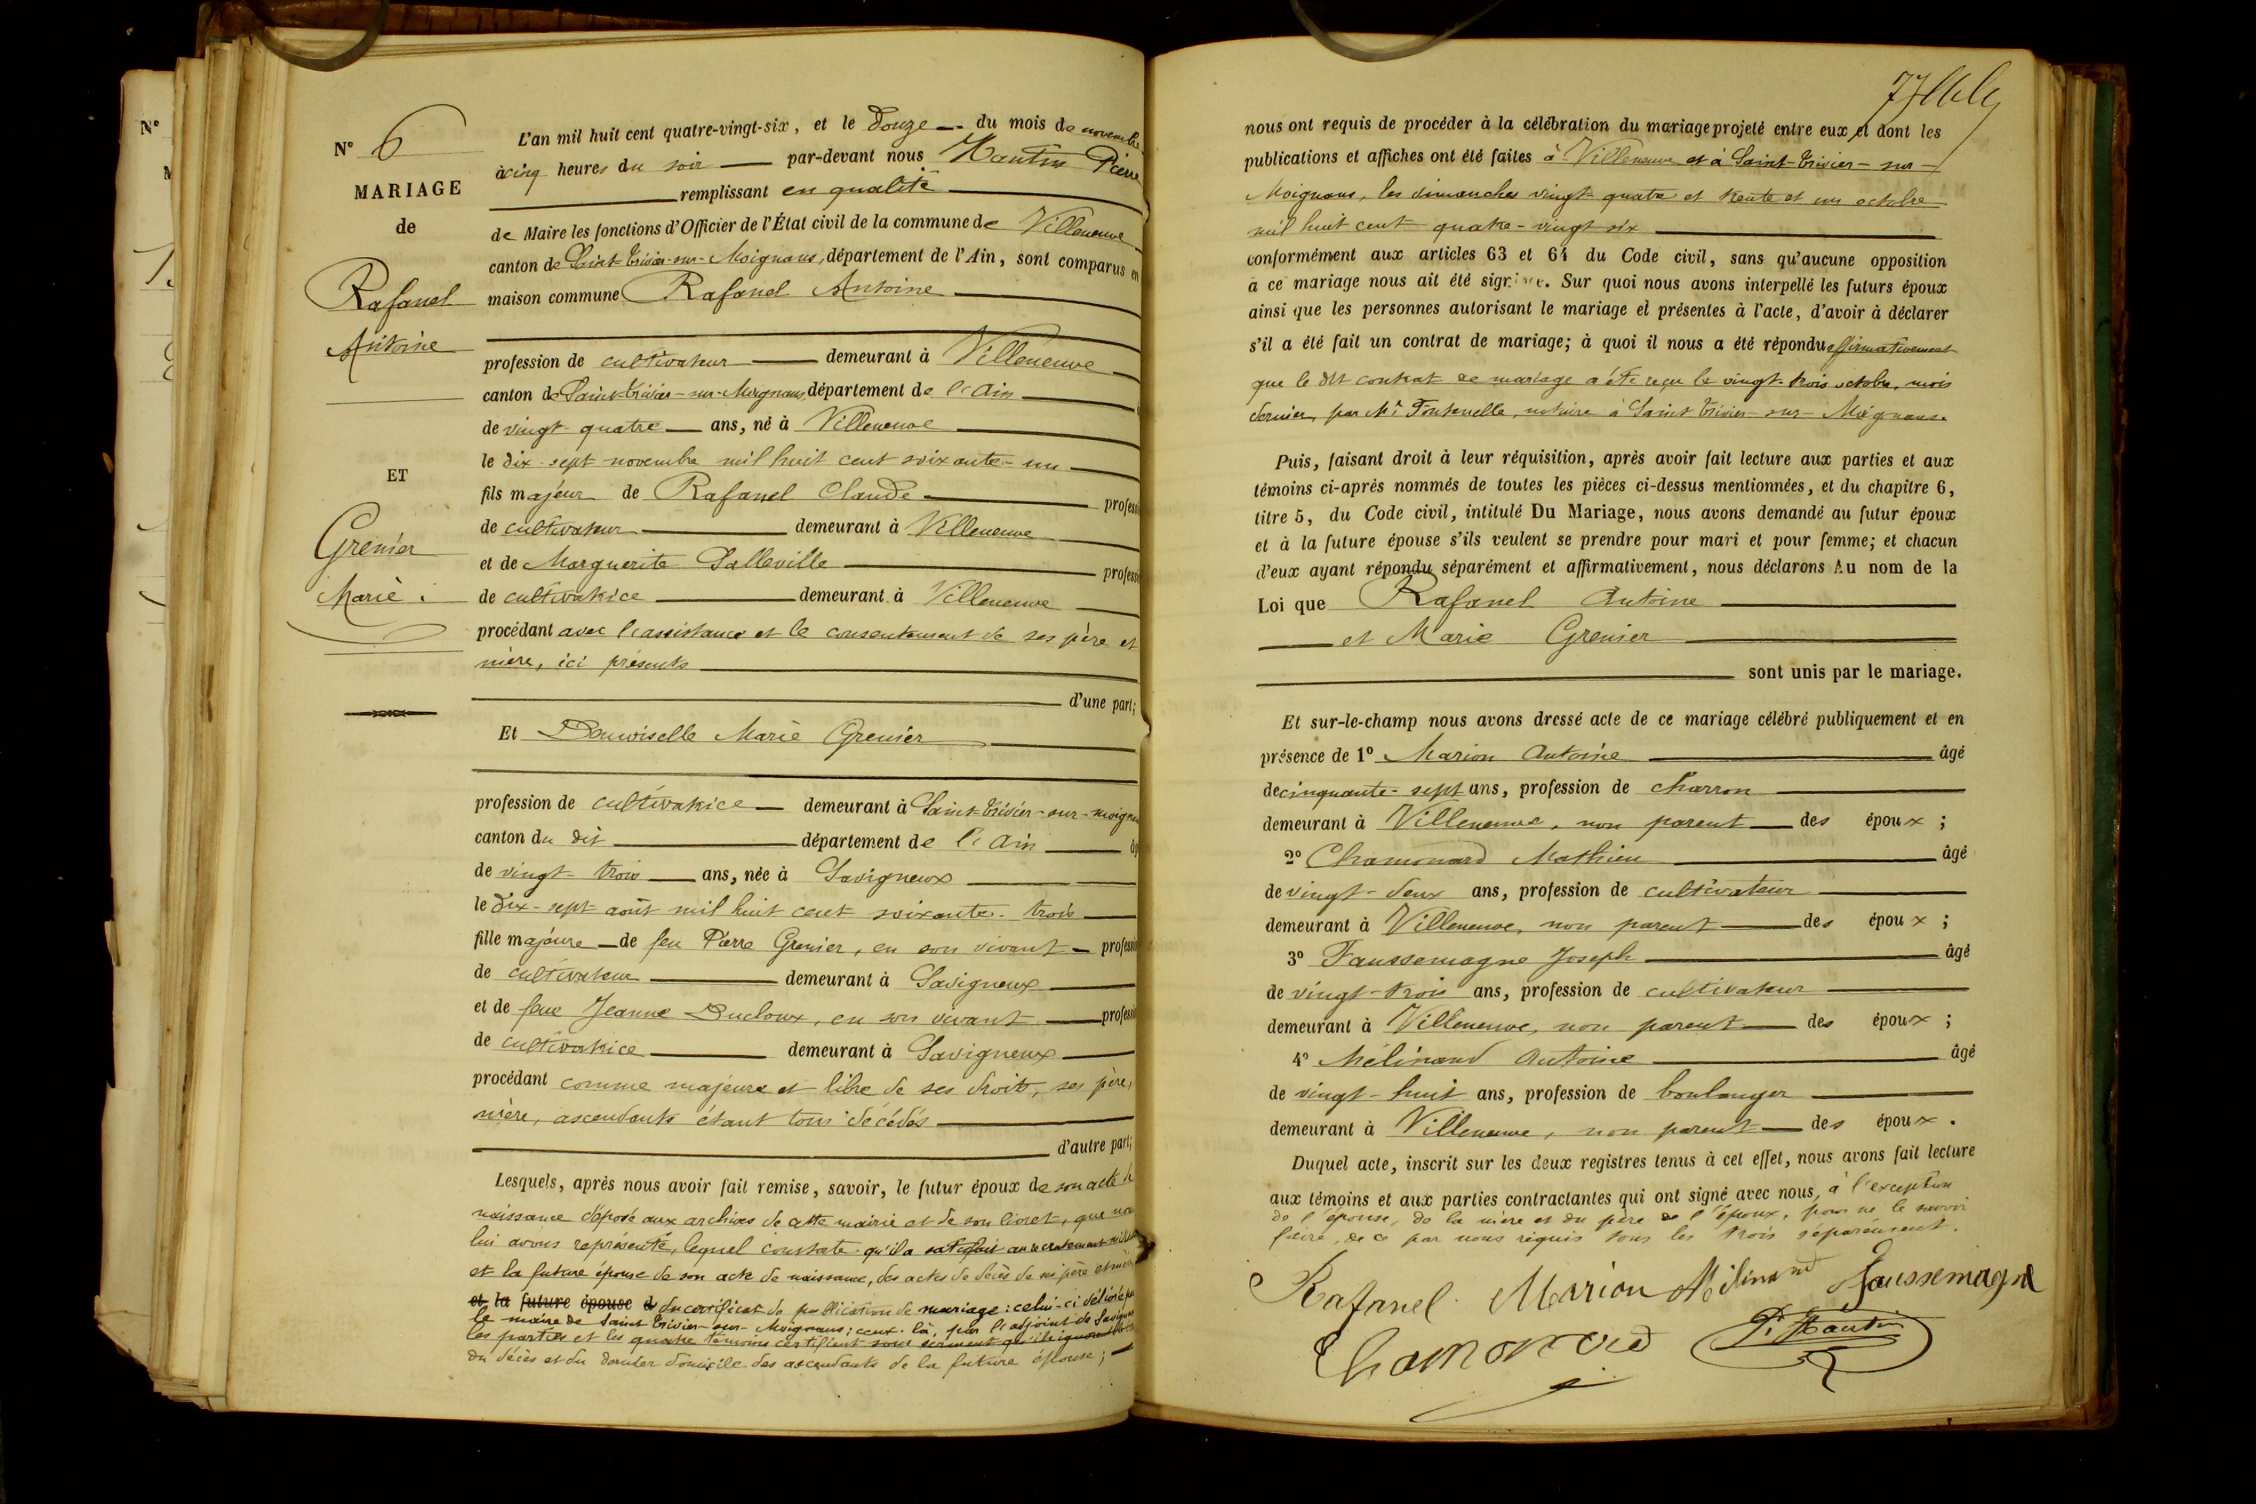 N°
N° 6
MARIAGE
de
Rafanel
Antoine
ET
Grenier
Marie
L'an mil huit cent quatre-vingt-six, et le Douze du mois de novembre
à cinq heures du soir par-devant nous Hautin Pierre
remplissant en qualité
de Maire les fonctions d'Officier de l'État civil de la commune de Villeneuve
canton de Saint-Trivier-sur-Moignans, département de l'Ain, sont comparus en
maison commune Rafanel Antoine
profession de cultivateur demeurant à Villeneuve
canton de Saint-Trivier-sur-Moignans, département de l'Ain
de vingt-quatre ans, né à Villeneuve
le dix-sept novembre mil huit cent soixante-un
fils majeur de Rafanel Claude profess
de cultivateur demeurant à Villeneuve
et de Marguerite Salleville professi
de cultivatrice demeurant à Villeneuve
procédant avec l'assistance et le consentement de ses père et
mère, ici présents
d'une part;
Et Demoiselle Marie Grenier
profession de cultivatrice demeurant à Saint-Trivier-sur-moignans
canton du dit département de l'Ain
de vingt-trois ans, née à Savigneux
le dix-sept août mil huit cent soixante-trois
fille majeure de feu Pierre Grenier, en son vivant professi
de cultivateur demeurant à Savigneux
et de feue Jeanne Ducloux, en son vivant professi
de cultivatrice demeurant à Savigneux
procédant comme majeure et libre de ses droits, ses père,
mère, ascendants étant tous décédés
d'autre part;
Lesquels, après nous avoir fait remise, savoir, le futur époux de son acte de
naissance déposé aux archives de cette mairie et de son livret, que nous
lui avons représenté, lequel constate qu'il a satisfait au recrutement
et la future épouse de son acte de naissance, des actes de décès de ses père et mère
et la future épouse d du certificat de publication de mariage: celui-ci délivré par
le maire de Saint Trivier-sur-Moignans; ceux-là, par l'adjoint de Savigneux
les parties et les quatre témoins certifient sous serment qu'ils ignorent
du décès et du dernier domicile des ascendants de la future épouse;
77
nous ont requis de procéder à la célébration du mariage projeté entre eux et dont les
publications et affiches ont été faites à Villeneuve et à Saint-Trivier-sur-
Moignans, les dimanches vingt-quatre et trente et un octobre
mil huit cent quatre-vingt six
conformément aux articles 63 et 64 du Code civil, sans qu'aucune opposition
à ce mariage nous ait été signifiée. Sur quoi nous avons interpellé les futurs époux
ainsi que les personnes autorisant le mariage et présentes à l'acte, d'avoir à déclarer
s'il a été fait un contrat de mariage; à quoi il nous a été répondu affirmativement
que le dit contrat de mariage a été reçu le vingt-trois octobre, mois
dernier, par Me Fontenelle, notaire à Saint Trivier-sur-Moignans.
Puis, faisant droit à leur réquisition, après avoir fait lecture aux parties et aux
témoins ci-après nommés de toutes les pièces ci-dessus mentionnées, et du chapitre 6,
titre 5, du Code civil, intitulé Du Mariage, nous avons demandé au futur époux
et à la future épouse s'ils veulent se prendre pour mari et pour femme; et chacun
d'eux ayant répondu séparément et affirmativement, nous déclarons Au nom de la
Loi que Rafanel Antoine
et Marie Grenier
sont unis par le mariage.
Et sur-le-champ nous avons dressé acte de ce mariage célébré publiquement et en
présence de 1° Marion Antoine âgé
de cinquante-sept ans, profession de charron
demeurant à Villeneuve, non parent des époux;
2° Chamonard Mathieu âgé
de vingt-deux ans, profession de cultivateur
demeurant à Villeneuve, non parent des époux;
3° Faussemagne Joseph âgé
de vingt-trois ans, profession de cultivateur
demeurant à Villeneuve, non parent des époux;
4° Mélinand Antoine âgé
de vingt-huit ans, profession de boulanger
demeurant à Villeneuve, non parent des époux.
Duquel acte, inscrit sur les deux registres tenus à cet effet, nous avons fait lecture
aux témoins et aux parties contractantes qui ont signé avec nous, à l'exception
de l'épouse, de la mère et du père de l'époux, pour ne le savoir
faire, de ce par nous requis tous les trois séparément.
Rafanel Marion Mélinand Faussemagne
Chamonard P. Hautin